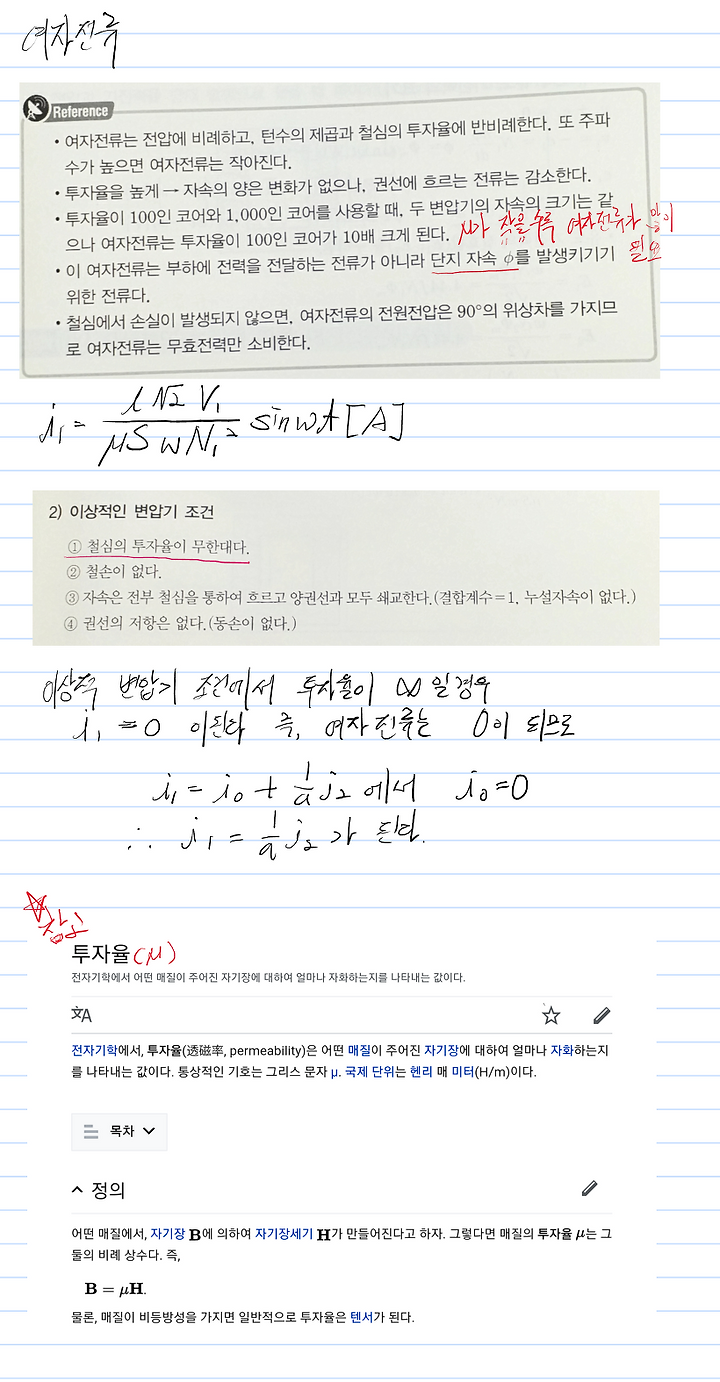 여자전류
Reference
• 여자전류는 전압에 비례하고, 턴수의 제곱과 철심의 투자율에 반비례한다. 또 주파
수가 높으면 여자전류는 작아진다.
• 투자율을 높게 → 자속의 양은 변화가 없으나, 권선에 흐르는 전류는 감소한다.
• 투자율이 100인 코어와 1,000인 코어를 사용할 때, 두 변압기의 자속의 크기는 같
으나 여자전류는 투자율이 100인 코어가 10배 크게 된다.
μ가 작을수록 여자전류가 많이
필요
• 이 여자전류는 부하에 전력을 전달하는 전류가 아니라 단지 자속 ϕ를 발생키기기
위한 전류다.
• 철심에서 손실이 발생되지 않으면, 여자전류의 전원전압은 90°의 위상차를 가지므
로 여자전류는 무효전력만 소비한다.
i₁ = l√2 V₁ / μSωN₁² sinωt [A]
2) 이상적인 변압기 조건
① 철심의 투자율이 무한대다.
② 철손이 없다.
③ 자속은 전부 철심을 통하여 흐르고 양권선과 모두 쇄교한다.(결합계수=1, 누설자속이 없다.)
④ 권선의 저항은 없다.(동손이 없다.)
이상적 변압기 조건에서 투자율이 ∞일경우
i₁ = 0 이된다 즉, 여자전류는 0이 되므로
i₁ = i₀ + 1/a i₂ 에서 i₀=0
∴ i₁ = 1/a i₂ 가 된다.
☆참고
투자율(μ)
전자기학에서 어떤 매질이 주어진 자기장에 대하여 얼마나 자화하는지를 나타내는 값이다.
전자기학에서, 투자율(透磁率, permeability)은 어떤 매질이 주어진 자기장에 대하여 얼마나 자화하는지
를 나타내는 값이다. 통상적인 기호는 그리스 문자 μ. 국제 단위는 헨리 매 미터(H/m)이다.
목차
정의
어떤 매질에서, 자기장 B에 의하여 자기장세기 H가 만들어진다고 하자. 그렇다면 매질의 투자율 μ는 그
둘의 비례 상수다. 즉,
B = μH.
물론, 매질이 비등방성을 가지면 일반적으로 투자율은 텐서가 된다.